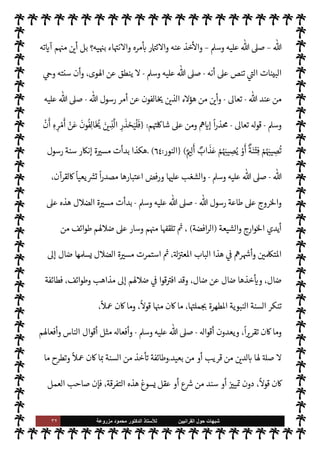 الله - صلى الله عليه وسلم - والأخذ عنه والائتمار بأمره والانتهاء بنهيه؟ بل أين منهم آياته
البينات التي تنص على أنه - صلى الله عليه وسلم - لا ينطق عن الهوى، وأن سنته وحي
من عند الله - تعالى - وأين من هؤلاء الذين يخالفون عن أمر رسول الله - صلى الله عليه
وسلم - قوله تعالى - محذراً إياهم ومن على شاكلتهم: (فَلْيَحْذَرِ الَّذِينَ يُخَالِفُونَ عَنْ أَمْرِهِ أَنْ
تُصِيبَهُمْ فِتْنَةٌ أَوْ يُصِيبَهُمْ عَذَابٌ أَلِيمٌ) (النور:٦٤) .هكذا بدأت مسيرة إنكار سنة رسول
الله - صلى الله عليه وسلم - والشغب عليها ورفض اعتبارها مصدراً تشريعياً كالقرآن،
والخروج على طاعة رسول الله - صلى الله عليه وسلم - بدأت مسيرة الضلال هذه على
أيدي الخوارج والشيعة (الرافضة) ، ثم تلقفها منهم وسار على ضلالهم طوائف من
المتكلمين وأشهرهم في هذا الباب المعتزلة، ثم استمرت مسيرة الضلال يسلمها ضال إلى
ضال، ويأخذها ضال عن ضال، وقد افترقوا في ضلالهم إلى مذاهب وطوائف، فطائفة
تنكر السنة النبوية المطهرة بجملتها، ما كان منها قولاً، وما كان عملاً،
وما كان تقريراً، ويعدون أقواله - صلى الله عليه وسلم - وأفعاله مثل أقوال الناس وأفعالهم
لا صلة لها بالدين من قريب أو من بعيد.وطائفة تأخذ من السنة بما كان عملاً وتطرح ما
كان قولاً، دون تمييز أو سند من شرع أو عقل يسوغ هذه التفرقة، فإن صاحب العمل
شبهات حول القرآنيين للأستاذ الدكتور محمود مزروعة ٣٢